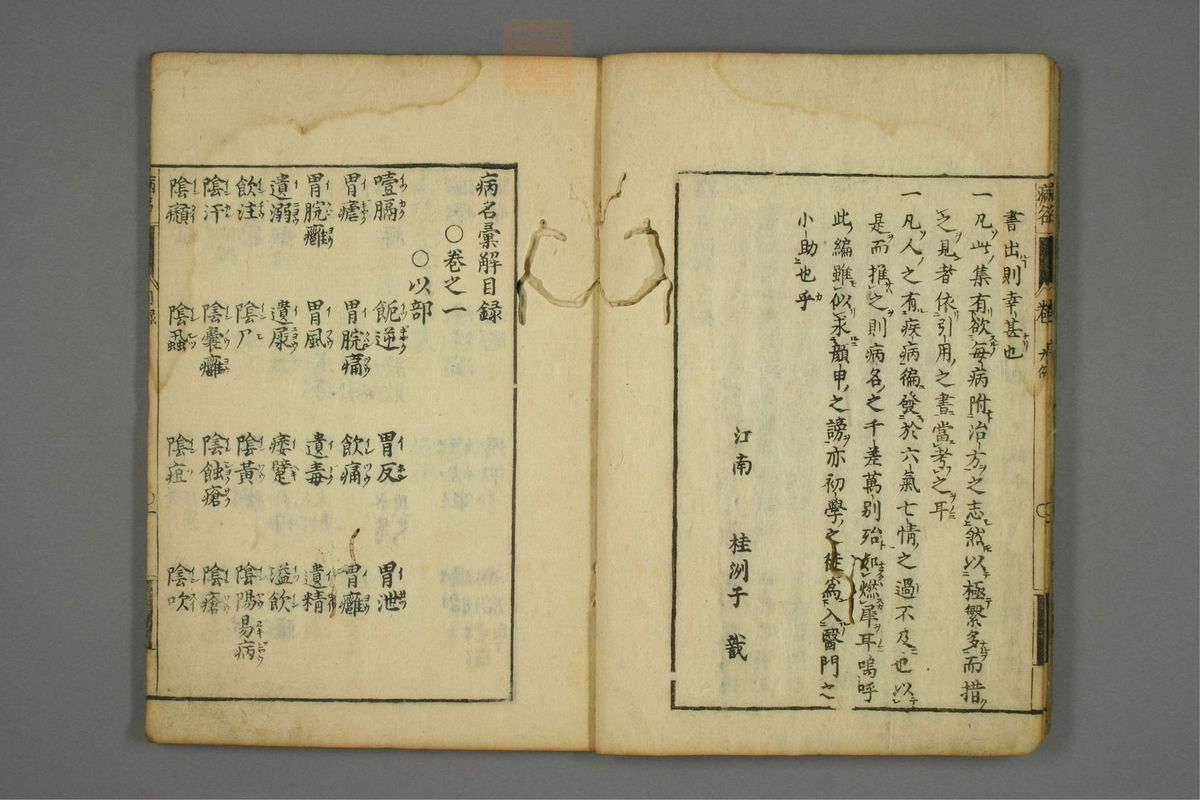 書出則幸甚也
一凡此集有欲每病附治方之志然以極繁多而措
之見者依引用之書當考之耳
一凡人之有疾病徧發於六氣七情之過不及也以
是而推之則病名之千差萬別殆如燃犀耳嗚呼
此編雖似永顔申之謗亦初學之徒爲入醫門之
小助也乎
江南 桂洲子 識
病名彙解目録
○卷之一
○以部
噎膈 呃逆 胃反 胃泄
胃瘡 胃脘痛 飲痛 胃癰
胃脘癰 胃風 遺毒 遺精
遺溺 遺尿 痿躄 溢飲
飲注 陰尸 陰黃 陰陽易病
陰汗 陰囊癰 陰蝕瘡 陰瘡
陰癩 陰蝨 陰疽 陰吹